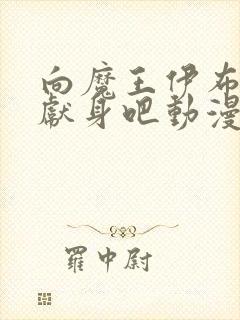 向魔王伊布
獻身吧動漫
羅中尉